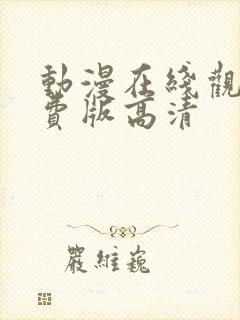 動漫在綫觀
費版高清
嚴維巍